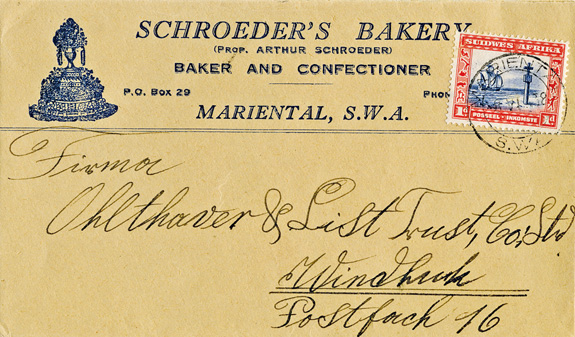 SCHROEDER'S BAKERY
(PROP. ARTHUR SCHROEDER)
BAKER AND CONFECTIONER
P.O. BOX 29
PHON
MARIENTAL, S.W.A.
SUIDWES AFRIKA
POSSEEL-INKOMSTE
1d 1d
MARIENTAL
S.W.
Firma
Ohlthaver & List Trust, Co, Ltd
Windhuk
Postfach 16